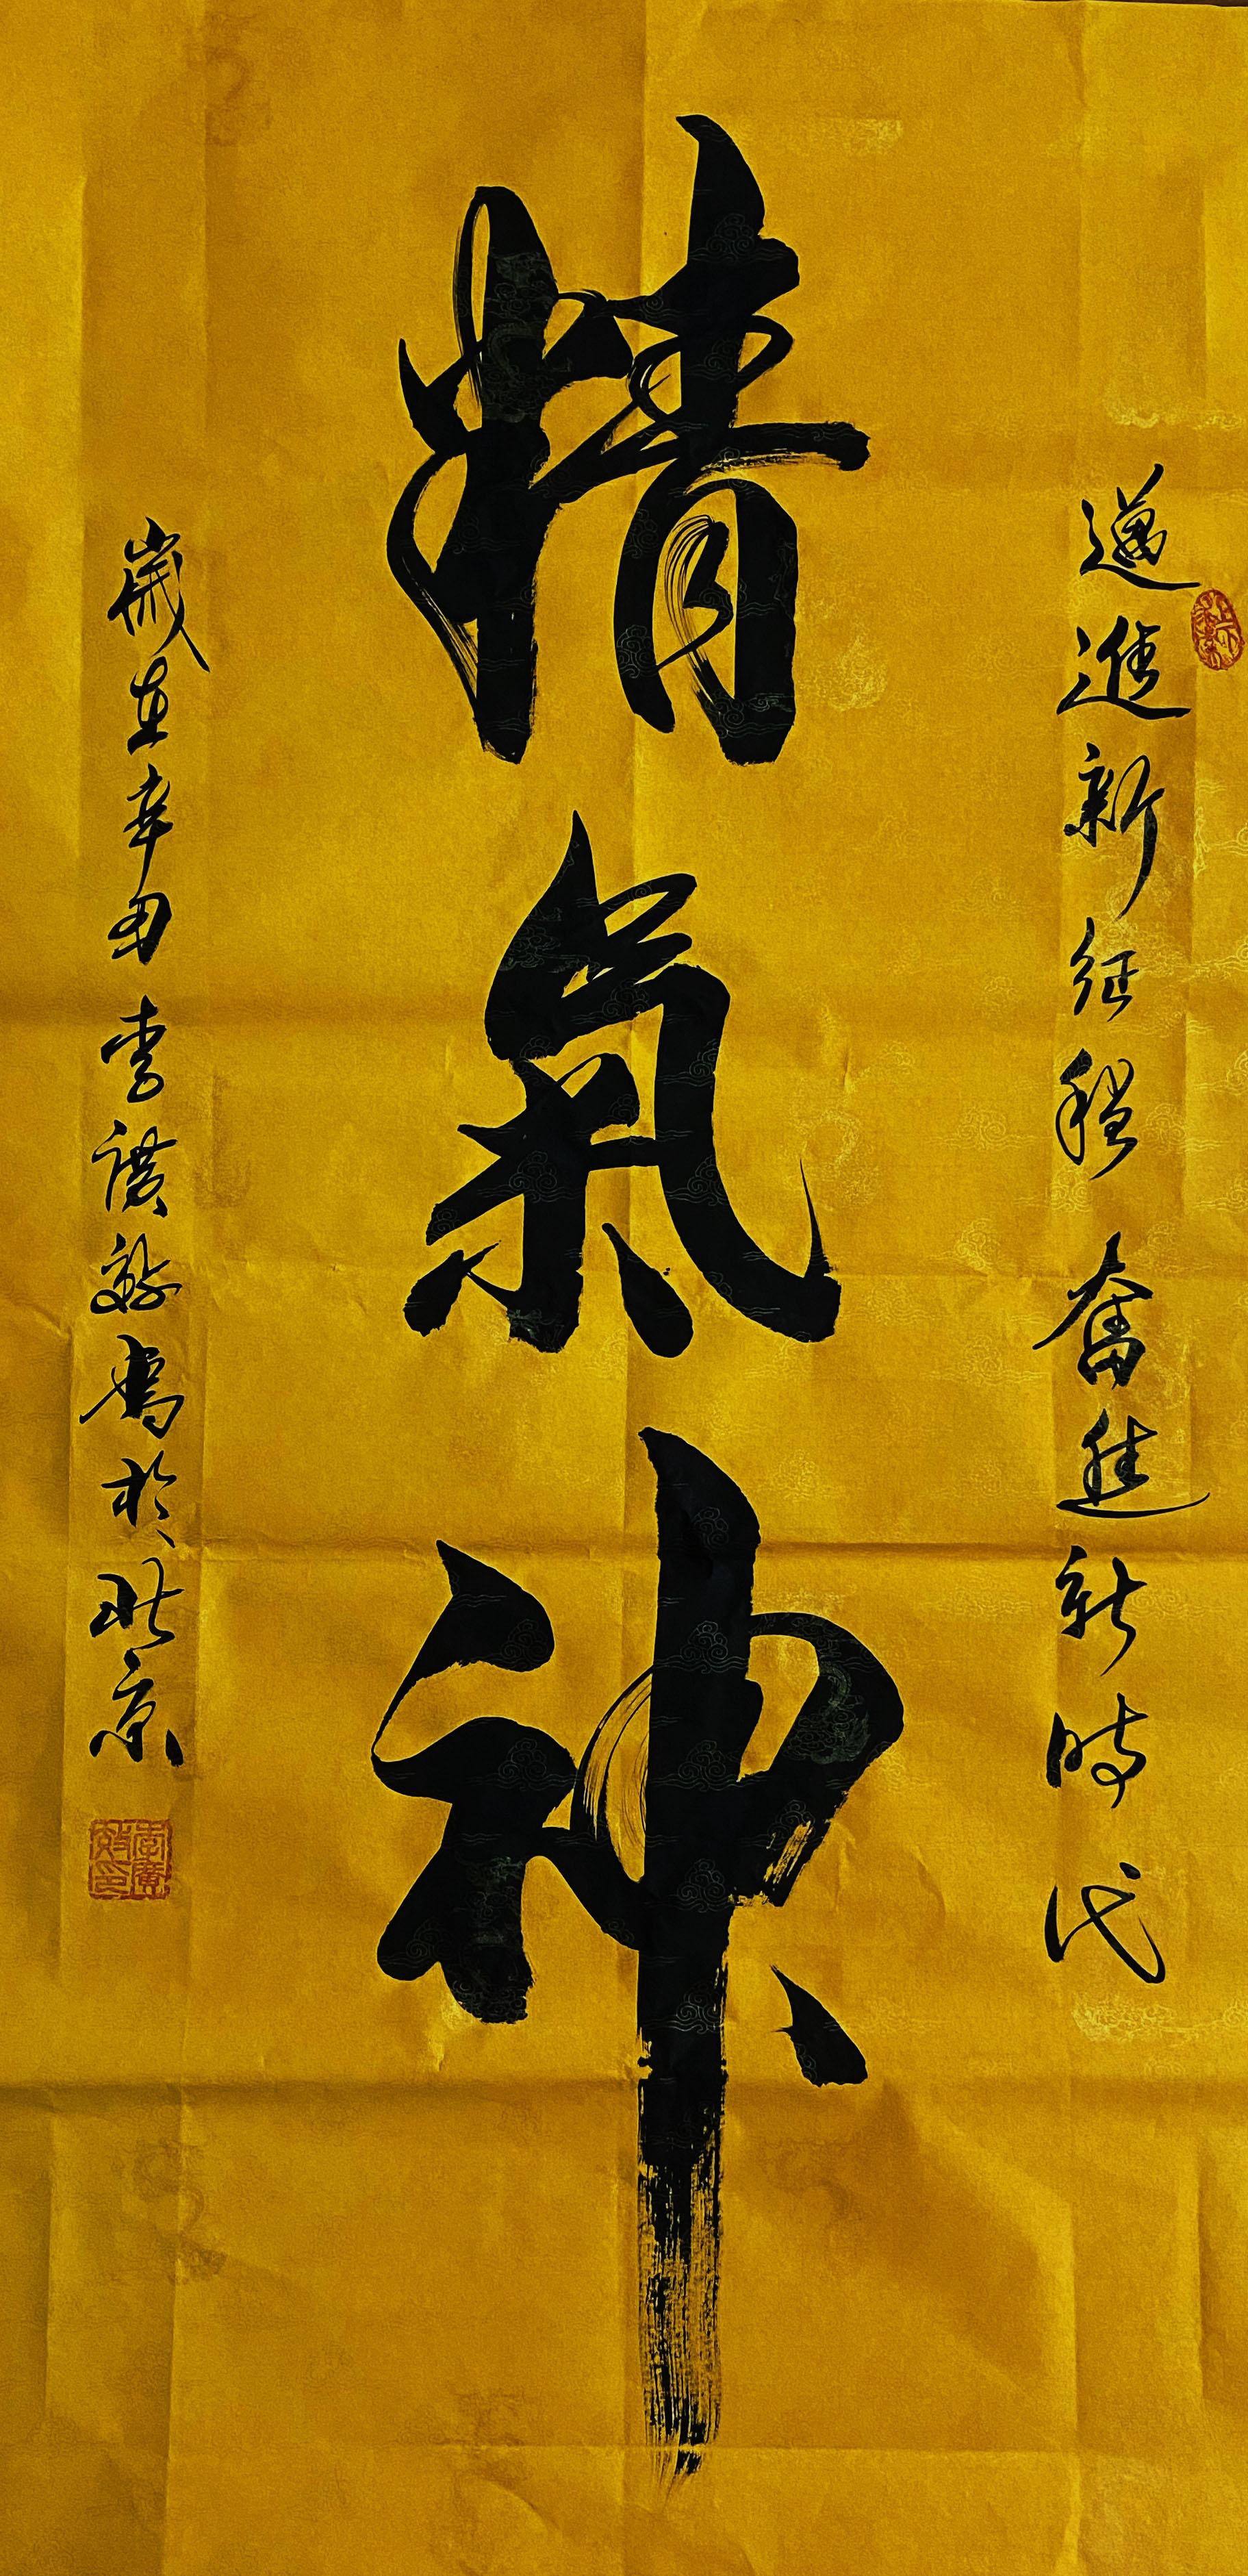 邁進新征程 奮進新時代
精氣神
歲在辛丑 李廣 寫於北京